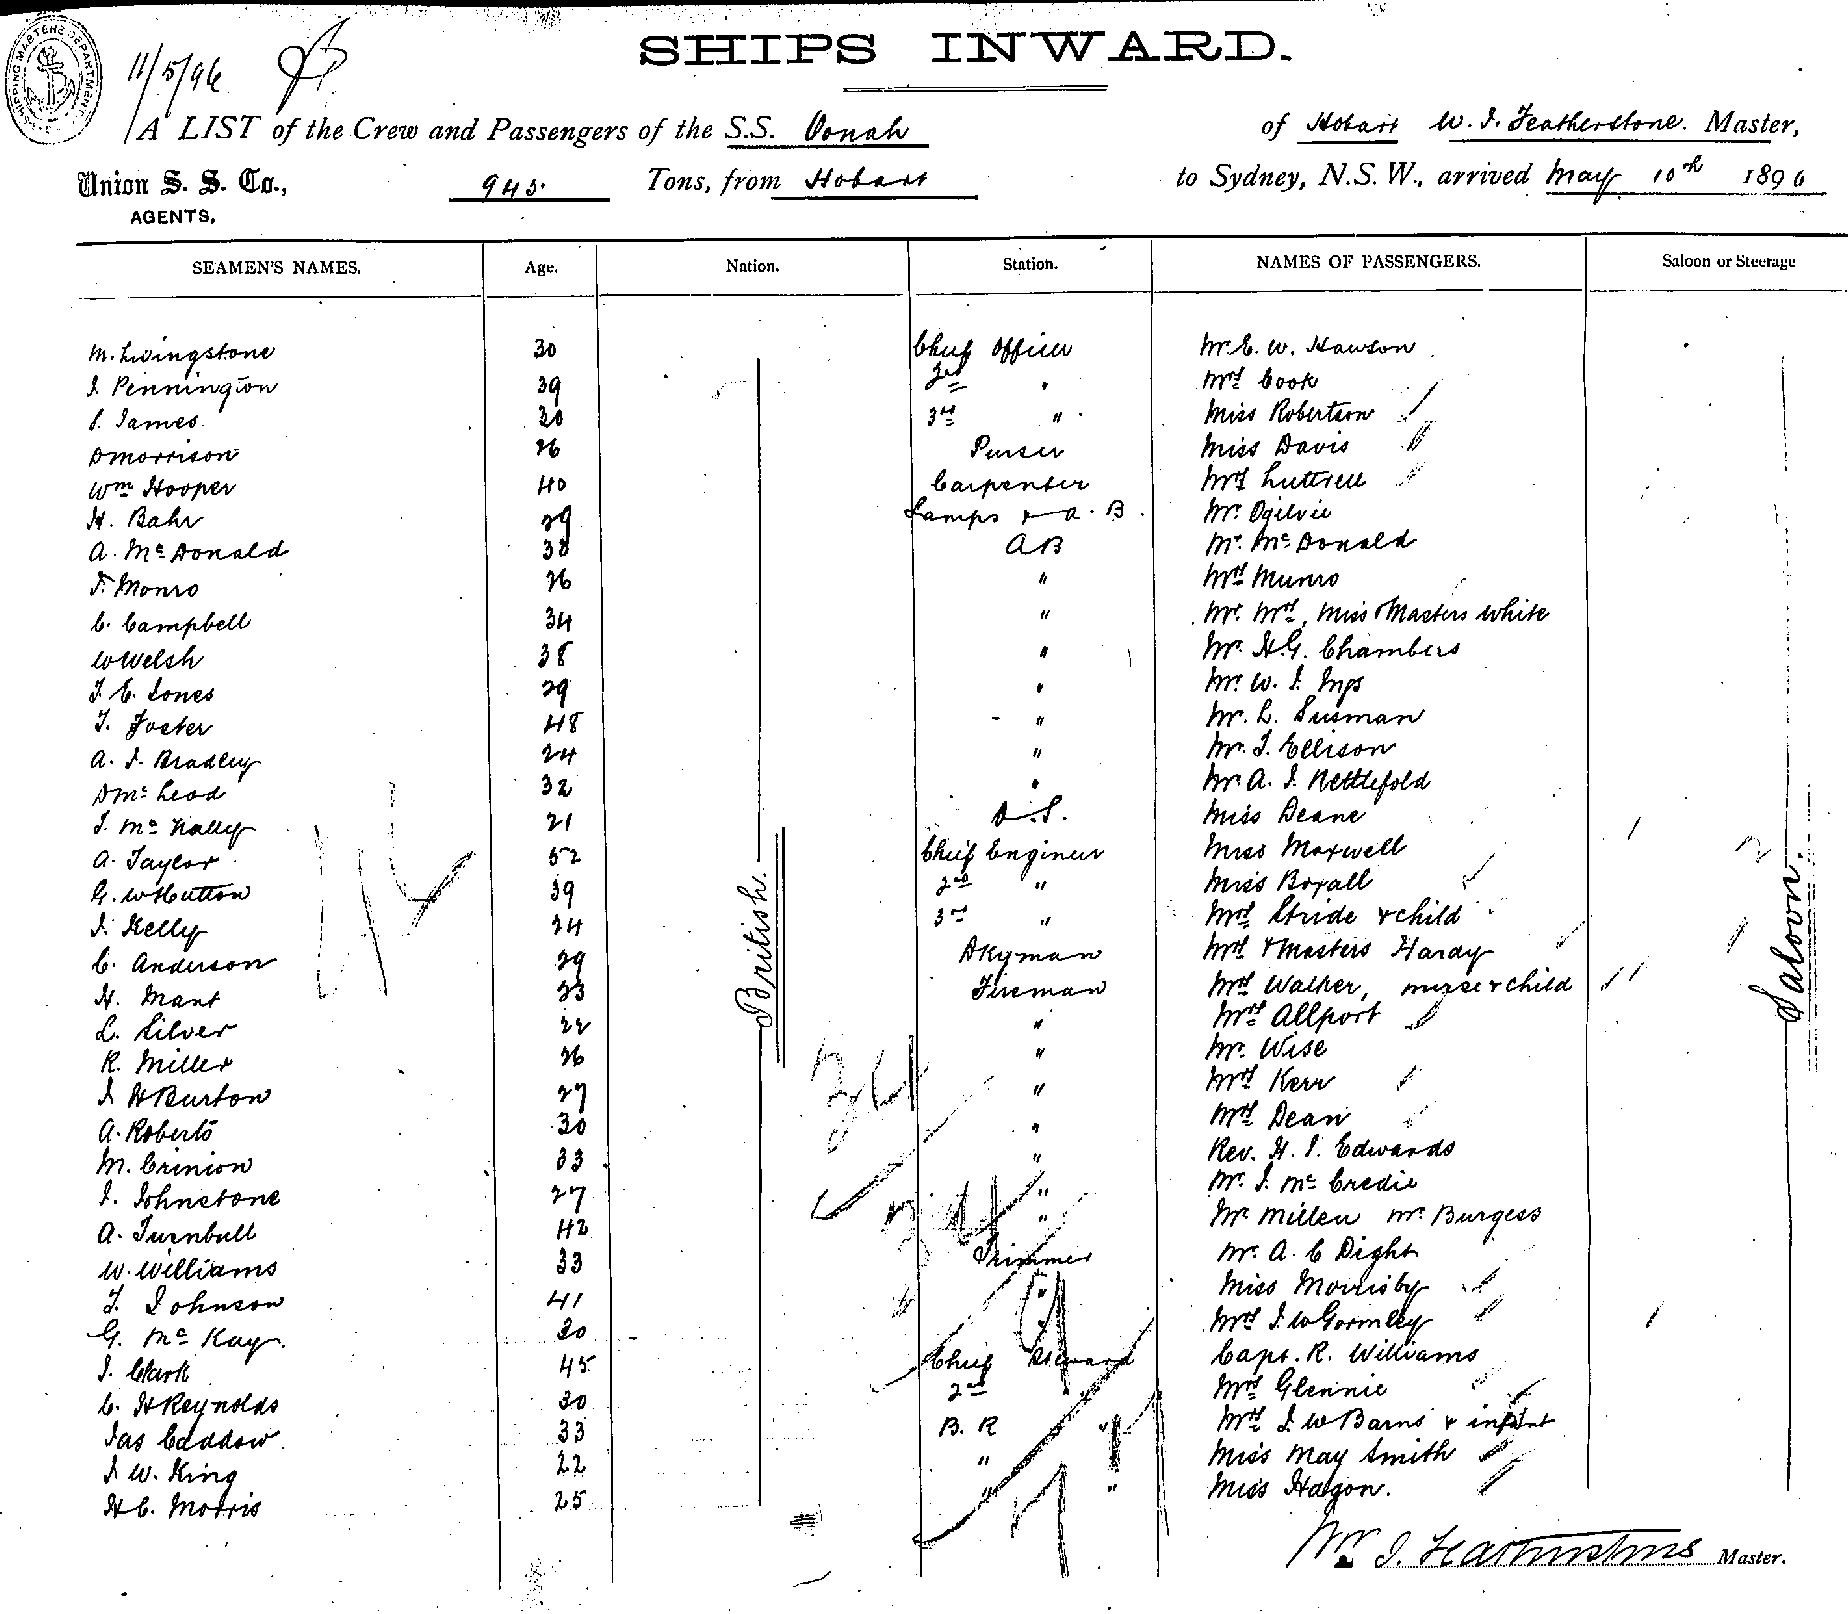 SHIPPING MASTERS DEPARTMENT
11/5/96
SHIPS INWARD.
A LIST of the Crew and Passengers of the S.S. Oonah of Hobart W. J. Featherstone. Master,
Union S. S. Co., 945. Tons, from Hobart to Sydney, N.S.W., arrived May 10th 1896
AGENTS.
SEAMEN'S NAMES. Age. Nation. Station. NAMES OF PASSENGERS. Saloon or Steerage
M. Livingstone 30 Chief Officer Mr E. W. Hawson
J. Pennington 39 2nd " Mrs Cook
S. James 30 3rd " Miss Robertson
D Morrison 26 Purser Miss Davis
Wm Hooper 40 Carpenter Mrs Luttrell
H. Bahr 29 Lamps & A.B. Mr. Ogilvie
A. McDonald 38 AB Mr. McDonald
J. Monro 26 " Mrs Munro
C. Campbell 34 " Mr. Mrs, Miss & Masters White
W Welsh 38 " Mr. H.G. Chambers
J. E. Jones 29 " Mr. W. J.
T. Foster 48 " Mr. L. Susman
A. J. Bradley 24 " Mr. J. Ellison
D McLeod 32 " Mr A. J. Nettlefold
J. McNally 21 O.S. Miss Deane
A. Taylor 52 Chief Engineer Miss Maxwell
G. W Hutton 39 2nd " Miss Boxall
J. Kelly 24 3rd " Mrs Stride & child
C. Anderson 29 Dkyman Mrs & Masters Hardy
H. Mant 23 Fireman Mrs Walker, nurse & child
L. Silver 22 " Mrs Allport
R. Miller 26 " Mr. Wise
J H Burton 27 " Mrs Kerr
A. Roberts 30 " Mrs Dean
M. Crinion 33 " Rev. H. J. Edwards
J. Johnstone 27 " Mr. J. McCredie
A. Turnbull 42 " Mr Millen Mr Burgess
W. Williams 33 Trimmer Mr. A. C Dight
T. Johnson 41 " Miss Morrisby
G. McKay. 30 " Mrs J. W Gormley
J. Clark 45 Chief Steward Capt. R. Williams
C. H Reynolds 30 2nd " Mrs Glennie
Jas Caddow 33 B. R " Mrs J. W Barns & infant
J W. King 22 " " Miss May Smith
H C. Morris 25 " " Miss Hagon.
British.
Saloon.
Wm J. Featherstone Master.